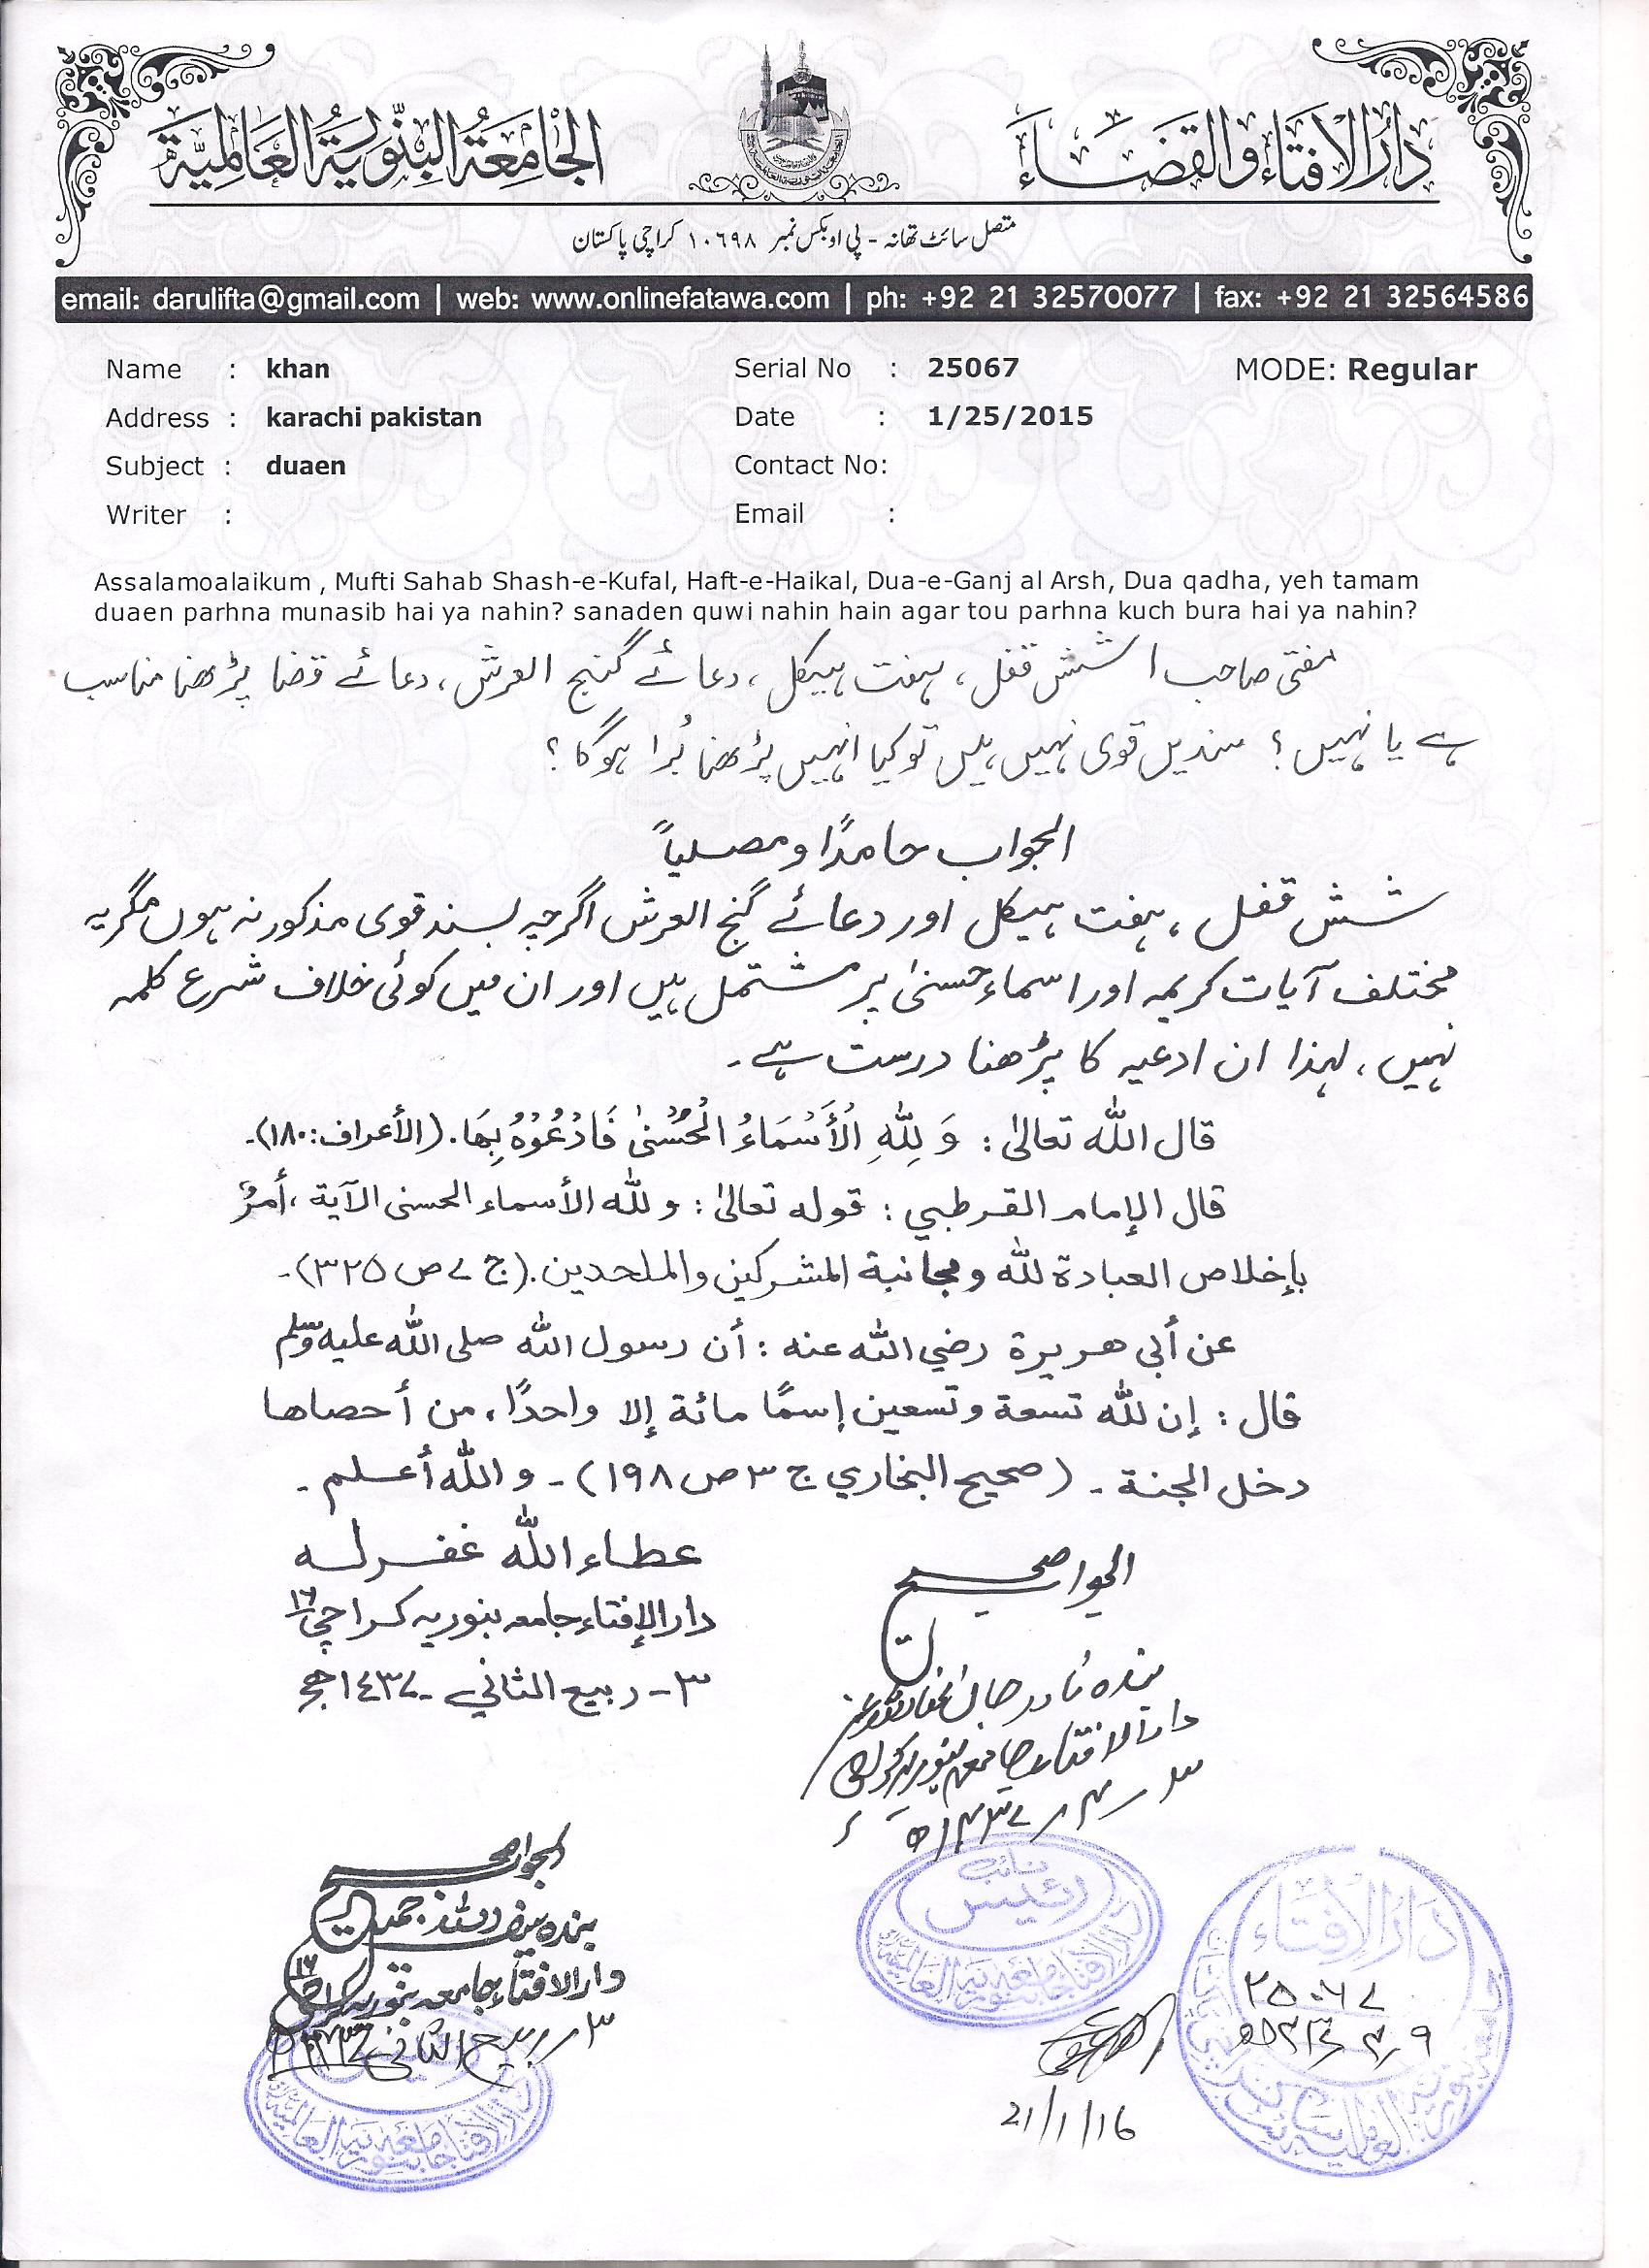 دَارُالإِفتَاء وَالقَضَاء
الجَامِعَةُ البِنّورِيَةُ العَالَمِيَّة
متصل سائٹ تھانہ - پی او بکس نمبر ۱۰۶۹۸ کراچی پاکستان
email: darulifta@gmail.com | web: www.onlinefatawa.com | ph: +92 21 32570077 | fax: +92 21 32564586
Name : khan Serial No : 25067 MODE: Regular
Address : karachi pakistan Date : 1/25/2015
Subject : duaen Contact No:
Writer : Email :
Assalamoalaikum , Mufti Sahab Shash-e-Kufal, Haft-e-Haikal, Dua-e-Ganj al Arsh, Dua qadha, yeh tamam
duaen parhna munasib hai ya nahin? sanaden quwi nahin hain agar tou parhna kuch bura hai ya nahin?
مفتی صاحب! شش قفل، ہفت ہیکل، دعائے گنج العرش، دعائے قضا پڑھنا مناسب
ہے یا نہیں؟ سندیں قوی نہیں ہیں تو کیا انہیں پڑھنا بُرا ہوگا؟
الجواب حامدًا ومصلیاً
شش قفل، ہفت ہیکل اور دعائے گنج العرش اگرچہ بسند قوی مذکور نہ ہوں مگر یہ
مختلف آیات کریمہ اور اسماء حسنیٰ پر مشتمل ہیں اور ان میں کوئی خلاف شرع کلمہ
نہیں، لہذا ان ادعیہ کا پڑھنا درست ہے۔
قال الله تعالىٰ: وَلِلّٰهِ الْأَسْمَاءُ الْحُسْنىٰ فَادْعُوْهُ بِهَا. (الأعراف: ١٨٠)۔
قال الإمام القرطبي: قوله تعالىٰ: ولله الأسماء الحسنى الآية، أمرٌ
بإخلاص العبادة لله ومجانبة المشركين والملحدين. (ج ٧ ص ٣٢٥)۔
عن أبي هريرة رضي الله عنه: أن رسول الله صلى الله عليه وسلم
قال: إن لله تسعة وتسعين إسمًا مائة إلا واحدًا، من أحصاها
دخل الجنة۔ (صحيح البخاري ج ٣ ص ١٩٨)۔ والله أعلم۔
عطاء الله غفر له
دار الإفتاء جامعہ بنوریہ کراچی ١٦
٣ـ ربیع الثاني ـ ١٤٣٧ھ
الجواب صحیح
بندہ نادر جان
دار الافتاء جامعہ بنوریہ کراچی
٣ ـ ٤ ـ ١٤٣٧ھ
الجواب صحیح
بندہ
دار الافتاء جامعہ بنوریہ کراچی ١٦
٣ ربیع الثانی
نائب
رئیس
دار الافتاء جامعہ بنوریہ العالمیہ
دَارُالإِفتَاء
٢٥٠٦٧
21/1/16